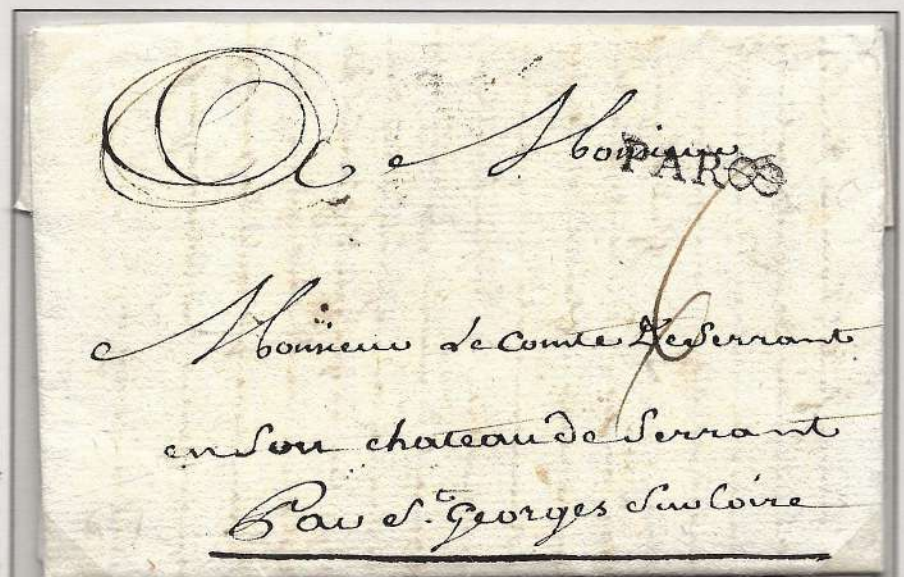 A Monsieur
PAR
Monsieur Le Comte De Serrant
en Son chateau de Serrant
Par St. Georges Sur Loire